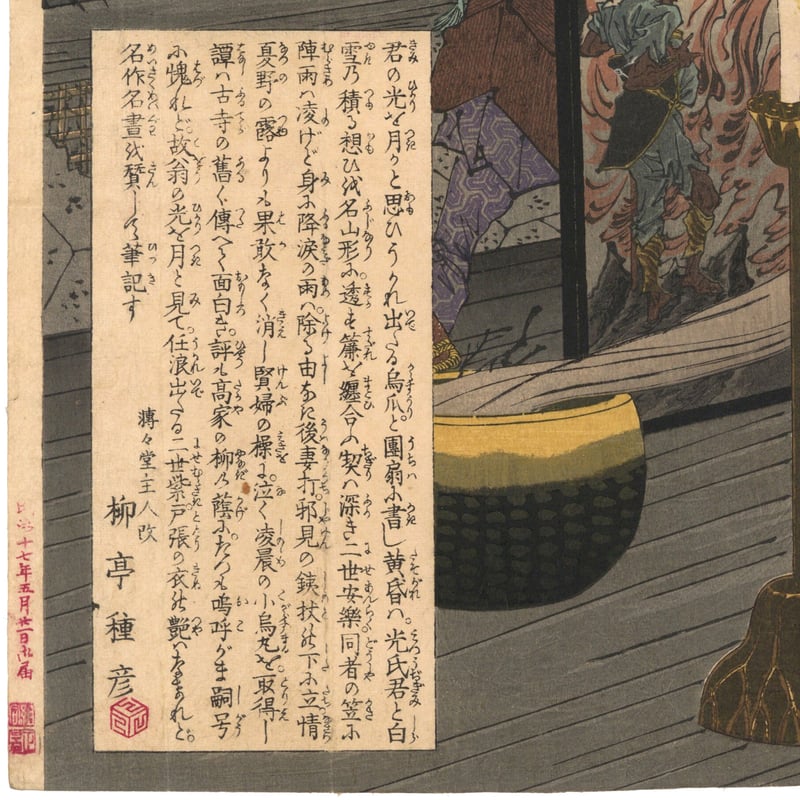 君の光を月かと思ひうかれ出たる烏瓜と團扇に書し黄昏は。光氏君と白
雪乃積る想ひを名山形に透す簾を纏合の契は深き二世安樂。同者の笠に
陣雨は凌げど身に降涙の雨は。除る由なき後妻打。邪見の鉄杖の下に立情
夏野の露よりも果敢なく消し賢婦の操に。泣く凌晨の小烏丸を取得し
譚は古寺の舊く傳へて面白き。評も高家の柳乃蔭にたつも嗚呼がま嗣号
に愧れど。故翁の光を月と見て。任浪出たる二世紫。戸張の衣の艶はなけれど。
名作名畫を賛して筆記す
薄々堂主人改
柳亭種彦
明治十七年五月廿一日御届